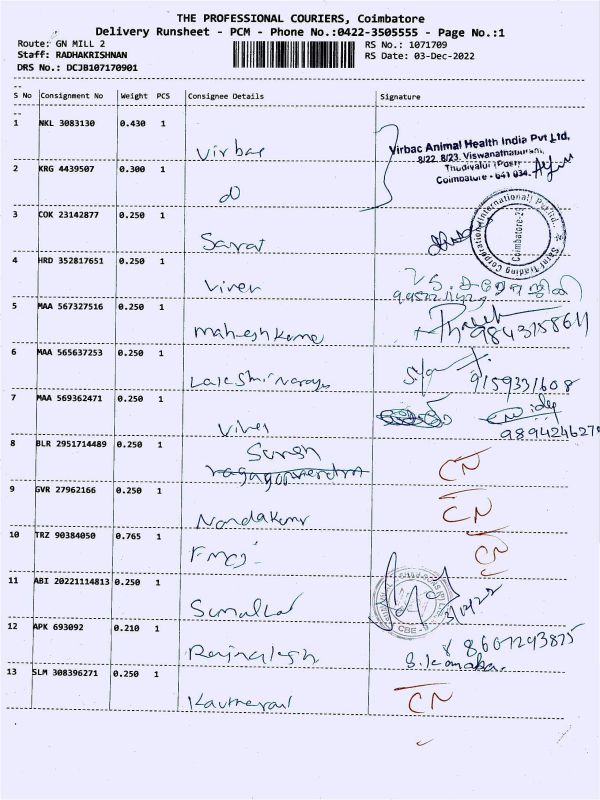 THE PROFESSIONAL COURIERS, Coimbatore
Delivery Runsheet - PCM - Phone No.:0422-3505555 - Page No.:1
Route: GN MILL 2 RS No.: 1071709
Staff: RADHAKRISHNAN RS Date: 03-Dec-2022
DRS No.: DCJB107170901
S No Consignment No Weight PCS Consignee Details Signature
1 NKL 3083130 0.430 1 Virbac
Virbac Animal Health India Pvt Ltd,
8/22, 8/23, Viswanathapuram,
Thudiyalur (Post)
Coimbatore - 641 034.
2 KRG 4439507 0.300 1
3 COK 23142877 0.250 1 Sarat
Saraf Trading Corporation (International) Pvt Ltd.
Coimbatore-29
4 HRD 352817651 0.250 1 Viven
5 MAA 567327516 0.250 1 Maheshkumar 9843158611
6 MAA 565637253 0.250 1 Lakshmi Naraya 9159331608
7 MAA 569362471 0.250 1 Viven
989424627
8 BLR 2951714489 0.250 1 Suresh CN
9 GVR 27962166 0.250 1 Nandakumr CN
10 TRZ 90384050 0.765 1 CN
11 ABI 20221114813 0.250 1 3/12/22
CBE - 9
12 APK 693092 0.210 1 8607293875
13 SLM 308396271 0.250 1 CN